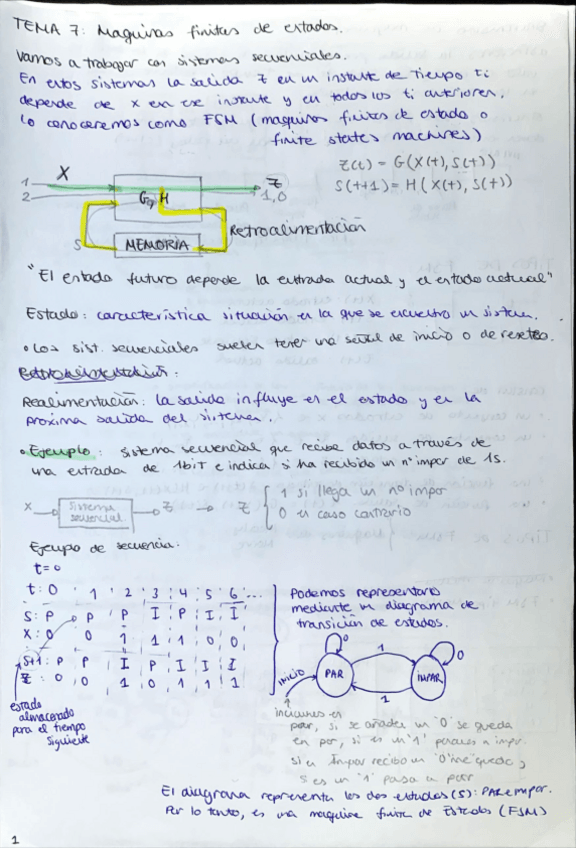 TEMA 7: Maquinas finitas de estados.
Vamos a trabajar con sistemas secuenciales.
En estos sistemas la salida Z en un instante de tiempo ti
depende de X en ese instante y en todos los ti anteriores.
Lo conoceremos como FSM (maquinas finitas de estado o
finite states machines)
X
1
2
G, H
Z
1,0
S
MEMORIA
Retroalimentación
Z(t) = G(X(t), S(t))
S(t+1) = H(X(t), S(t))
"El estado futuro depende la entrada actual y el estado actual"
Estado: característica situación en la que se encuentra un sistem.
• Los sist. secuenciales suelen tener una señal de inicio o de reseteo.
Realimentación: la salida influye en el estado y en la
próxima salida del sistema.
• Ejemplo: sistema secuencial que recibe datos a través de
una entrada de 1bit e indica si ha recibido un nº impar de 1s.
X
Sistema
secuencial
Z
Z { 1 si llega un nº impar
0 en caso contrario
Ejemplo de secuencia:
t=0
t: 0 1 2 3 4 5 6 ...
S: P P P I P I I
X: 0 0 1 1 1 0 0
S+1: P P I P I I I
Z: 0 0 1 0 1 1 1
estado
almacenado
para el tiempo
siguiente
Podemos representarlo
mediante un diagrama de
transición de estados.
INICIO
PAR
IMPAR
0
1
0
1
iniciamos en
par, si se añade un '0' se queda
en par, si es un '1' pasamos a impar.
si en Impar recibo un '0' me quedo,
si es un '1' paso a par
El diagrama representa los dos estados (S): PAR e impar.
Por lo tanto, es una maquina finita de Estados (FSM)
1